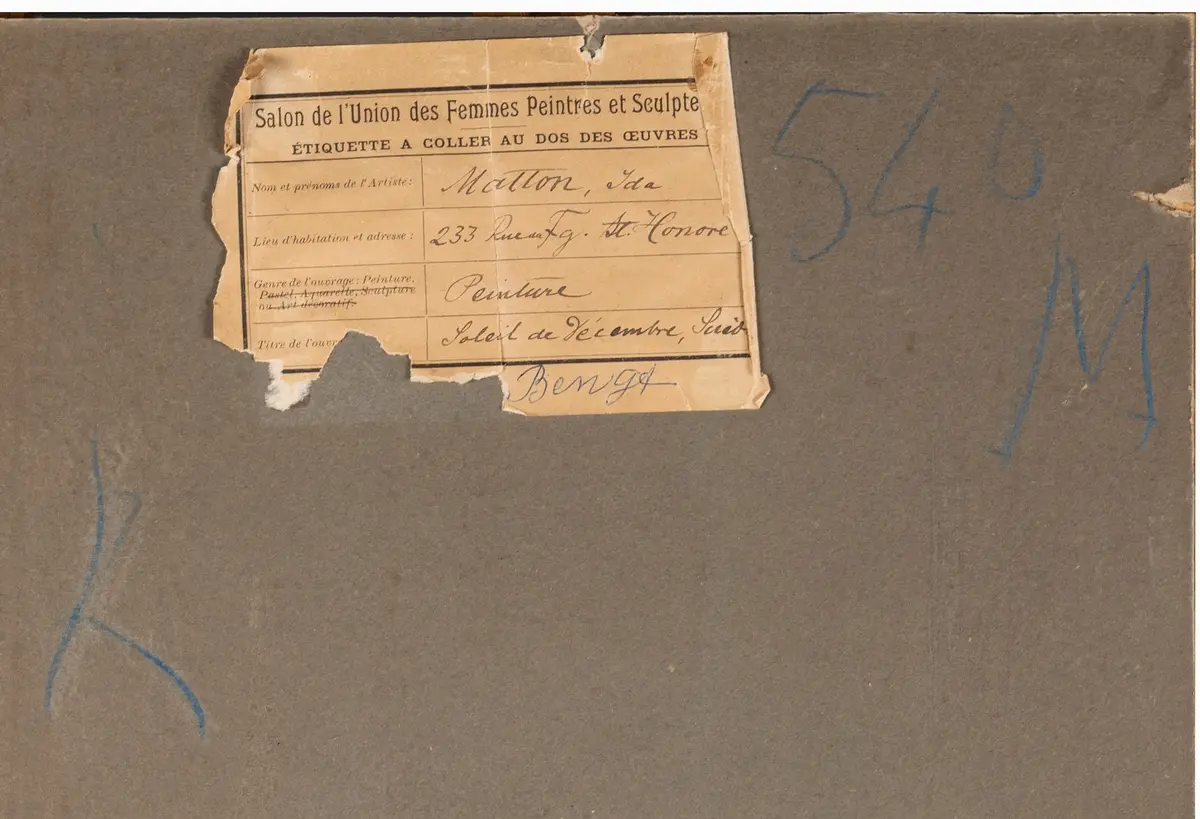 Salon de l'Union des Femmes Peintres et Sculpte
ÉTIQUETTE A COLLER AU DOS DES ŒUVRES
Nom et prénoms de l'Artiste: Matton, Ida
Lieu d'habitation et adresse: 233 Rue du Fg. St. Honoré
Genre de l'ouvrage: Peinture,
Pastel, Aquarelle, Sculpture
ou Art décoratif.
Peinture
Titre de l'ouvr Soleil de Décembre, Suèd
Bengt
540
M
K